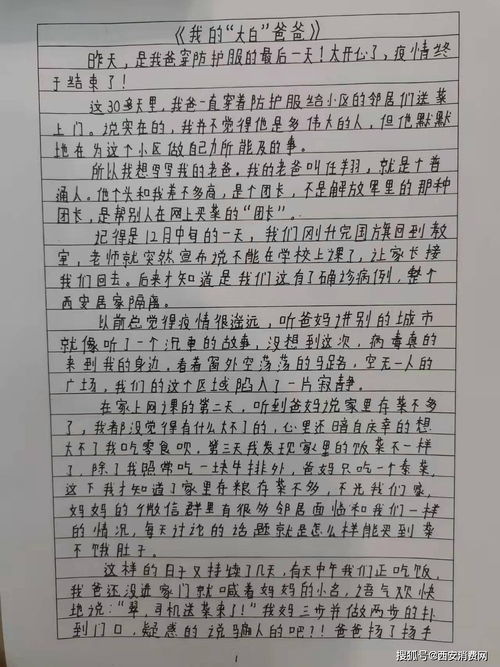 《我的“大白”爸爸》
昨天，是我爸穿防护服的最后一天！太开心了，疫情终
于结束了！
这30多天里，我爸一直穿着防护服给小区的邻居们送菜
上门。说实在的，我并不觉得他是多伟大的人，但他默默
地在为这个小区做自己力所能及的事。
所以我想写写我的老爸。我的老爸叫任翔，就是个普
通人。他个头和我差不多高，是个团长，不是解放军里的那种
团长，是帮别人在网上买菜的“团长”。
记得是12月中旬的一天，我们刚升完国旗回到教
室，老师就突然宣布说不能在学校上课了，让家长接
我们回去。后来才知道是我们这有了确诊病例，整个
西安居家隔离。
以前总觉得疫情很遥远，听爸妈讲别的城市
就像听了一个沉重的故事，没想到这次，病毒真的
来到我的身边，看着窗外空荡荡的马路，空无一人的
广场，我们的这个区域陷入了一片寂静。
在家上网课的第二天，听到爸妈说家里存菜不多
了，我都没觉得有什么大不了的，心里还暗自庆幸的想
大不了我吃零食呗，第三天我发现家里的饭菜不一样
了，除了我照常吃一块牛排外，爸妈只吃一个素菜，
这下我才知道了家里存粮存菜不多，不光我们家，
妈妈的微信群里有很多邻居面临和我们一样
的情况，每天讨论的话题就是怎么样能买到菜
不饿肚子。
这样的日子又持续了几天，有天中午我们正吃饭，
我爸还没进家门就喊着妈妈的小名，语气欢快
地说：“翠，司机送菜来了！”我妈三步并做两步的扑
到门口，疑惑的说骗人的吧？！爸爸扬了扬手
1
搜狐号@西安消费网